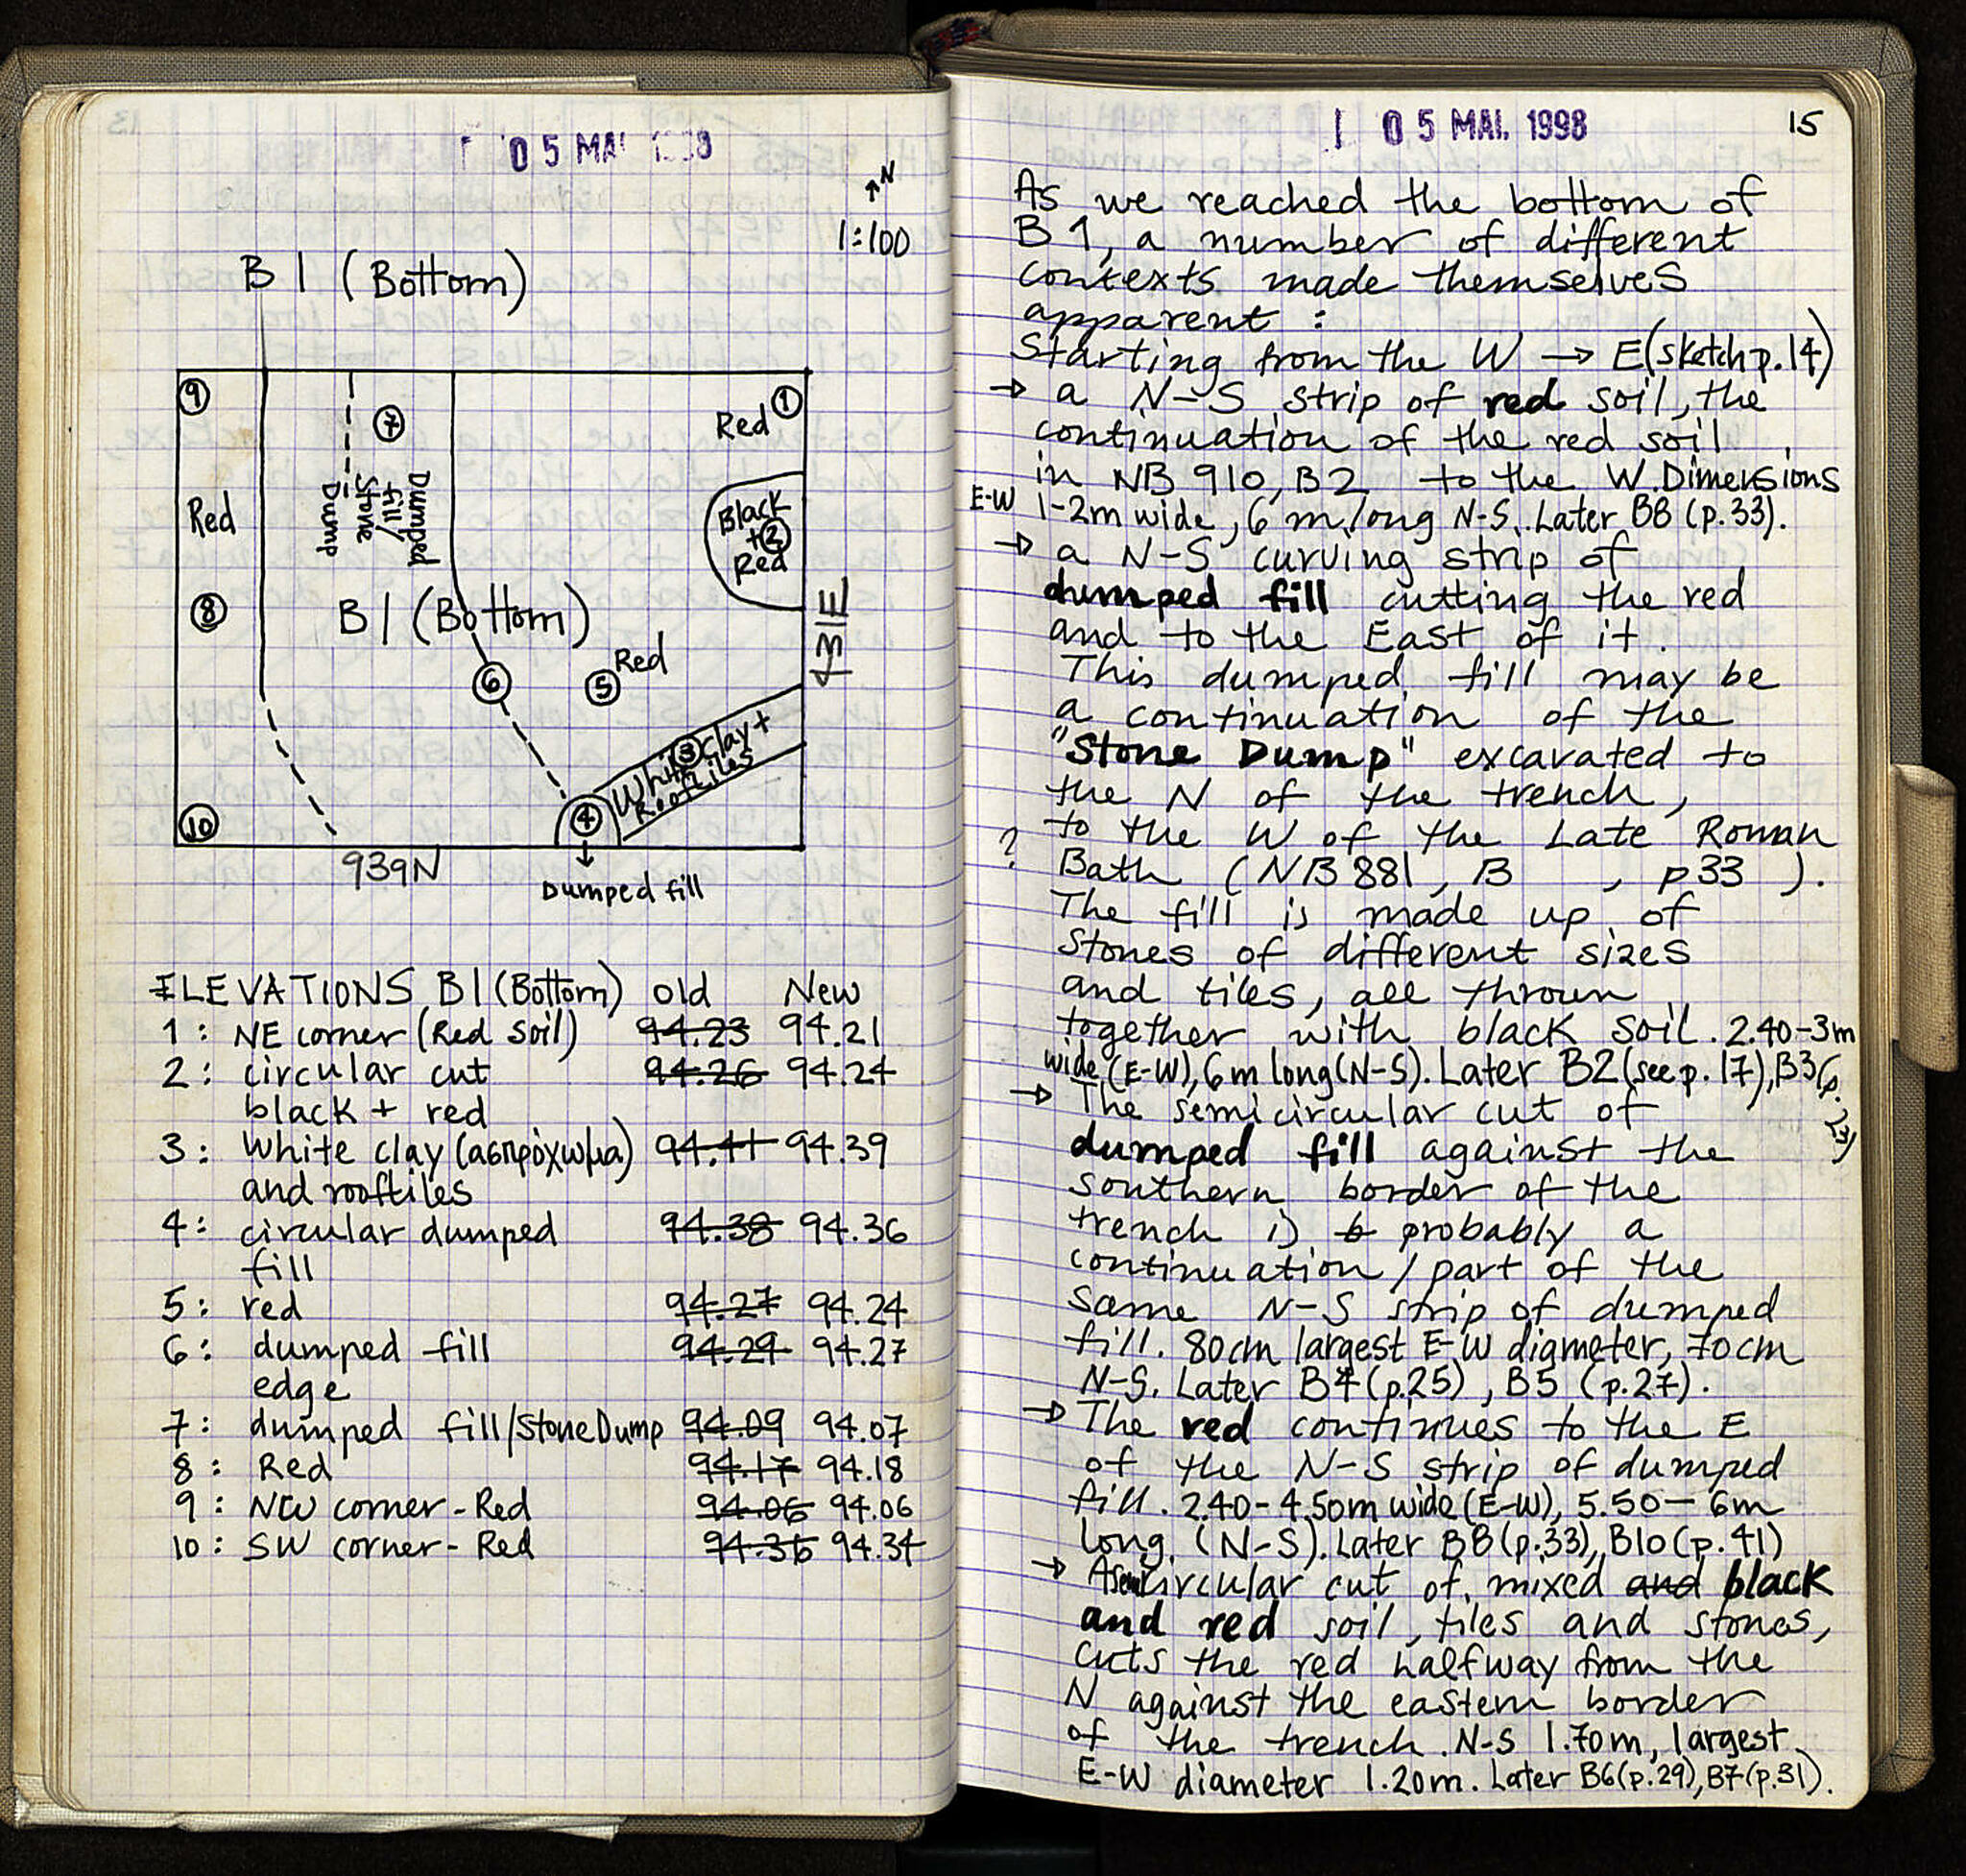 05 MAI 1998
N
1:100
B1 (Bottom)
9
7
Red
1
Dumped
fill/
Stone
Dump
Red
Black
+ 2
Red
8
B1 (Bottom)
Red
6
5
3
White clay +
Rooftiles
4
10
939N
Dumped fill
ELEVATIONS B1 (Bottom) Old New
1: NE corner (Red Soil) 94.23 94.21
2: circular cut 94.26 94.24
black + red
3: White clay (ασπρόχωμα) 94.41 94.39
and rooftiles
4: circular dumped 94.38 94.36
fill
5: red 94.27 94.24
6: dumped fill 94.29 94.27
edge
7: dumped fill/Stone Dump 94.09 94.07
8: Red 94.17 94.18
9: NW corner - Red 94.06 94.06
10: SW corner - Red 94.36 94.34
05 MAI. 1998
15
As we reached the bottom of
B1, a number of different
contexts made themselves
apparent :
Starting from the W → E (sketch p. 14)
→ a N-S strip of red soil, the
continuation of the red soil
in NB 910, B2 to the W. Dimensions
E-W 1-2m wide, 6 m long N-S. Later B8 (p.33).
→ a N-S curving strip of
dumped fill cutting the red
and to the East of it.
This dumped fill may be
a continuation of the
"Stone Dump" excavated to
the N of the trench,
to the W of the Late Roman
? Bath (NB 881, B , p 33 ).
The fill is made up of
stones of different sizes
and tiles, all thrown
together with black soil. 2.40-3m
wide (E-W), 6m long (N-S). Later B2 (see p. 17), B3 (p. 23)
→ The semicircular cut of
dumped fill against the
southern border of the
trench is b probably a
continuation / part of the
same N-S strip of dumped
fill. 80cm largest E-W diameter, 70cm
N-S. Later B4 (p.25), B5 (p.27).
→ The red continues to the E
of the N-S strip of dumped
fill. 2.40-4.50m wide (E-W), 5.50-6m
long. (N-S). Later B8 (p.33), B10 (p.41)
→ A semicircular cut of mixed and black
and red soil, tiles and stones,
cuts the red halfway from the
N against the eastern border
of the trench. N-S 1.70m, largest
E-W diameter 1.20m. Later B6 (p.29), B7 (p.31).